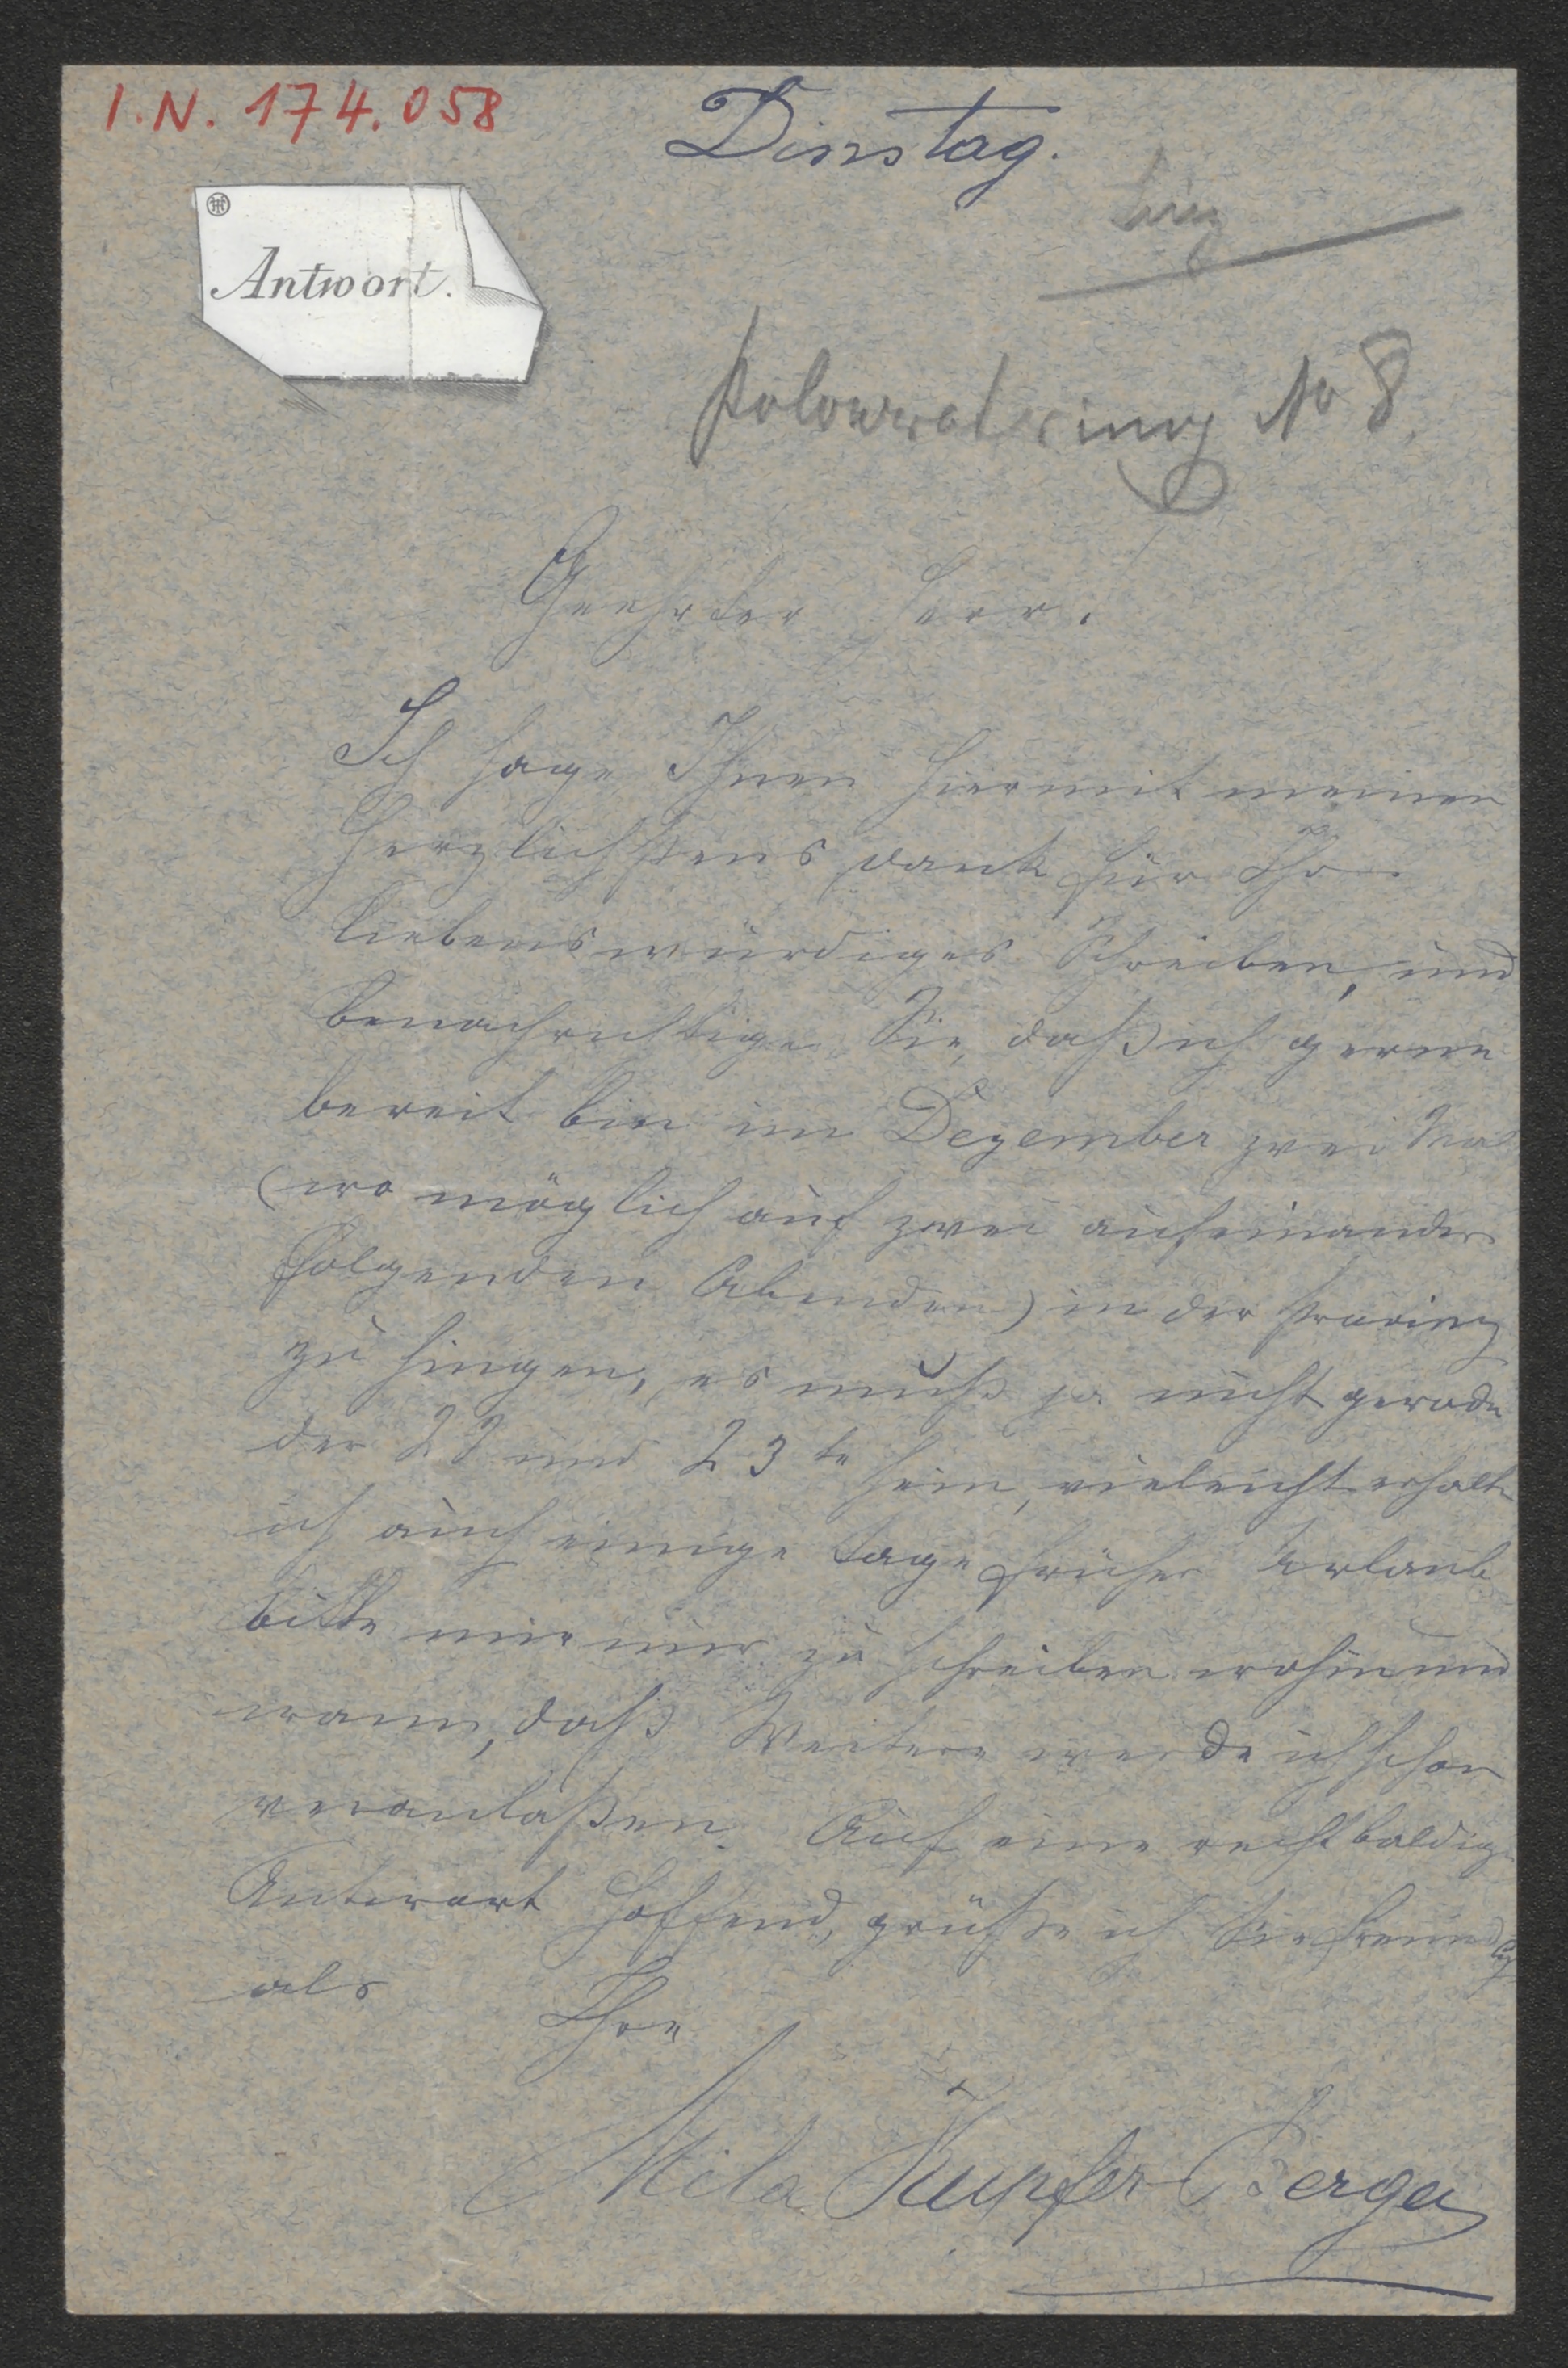 I.N. 174.058
Dinstag.
Antwort.
Kolowratring No 8.
Geehrter Herr.
Ich sage Ihnen hiermit meinen
herzlichstens dank für Ihr
liebenswürdiges Schreiben, und
benachrichtige Sie, daß ich gerne
bereit bin im Dezember zwei Mal
(wo möglich auf zwei aufeinander
folgenden Abenden) in der Provinz
zu singen, es muß ja nicht gerade
der 22 und 23te sein, vieleicht erhalte
ich auch einige Tage früher Urlaub
bitte mir nur zu schreiben wohin und
wann, daß Weitere werde ich schon
veranlaßen. Auf eine recht baldige
Antwort hoffend, grüße ich Sie freundlich
als Ihre
Mila Kupfer Berger